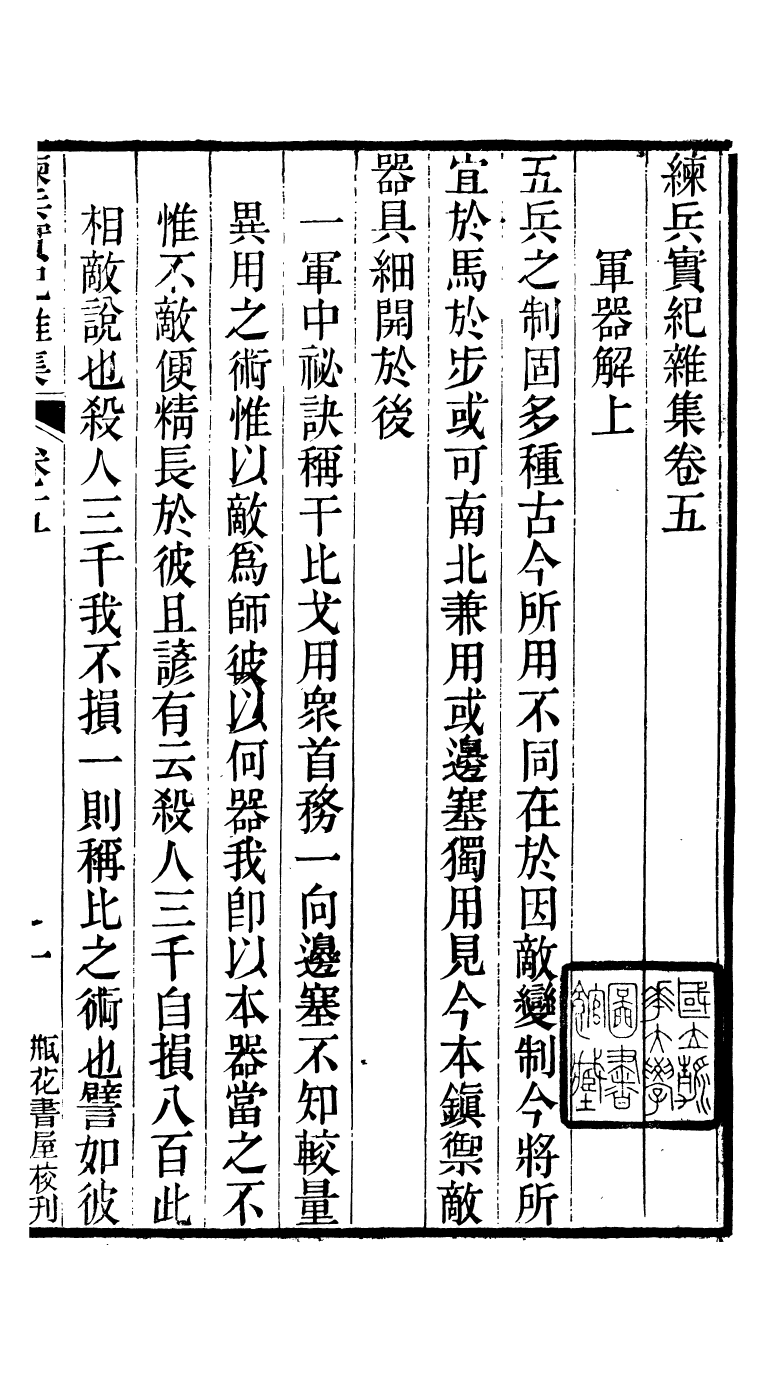 練兵實紀雜集卷五
軍器解上
五兵之制固多種古今所用不同在於因敵變制今將所
宜於馬於步或可南北兼用或邊塞獨用見今本鎮禦敵
器具細開於後
一軍中祕訣稱干比戈用衆首務一向邊塞不知較量
異用之術惟以敵爲師彼以何器我卽以本器當之不
惟不敵便精長於彼且諺有云殺人三千自損八百此
相敵說也殺人三千我不損一則稱比之術也譬如彼
練兵實紀雜集
卷五
一
瓶花書屋校刊
國立
大學
圖書
館藏